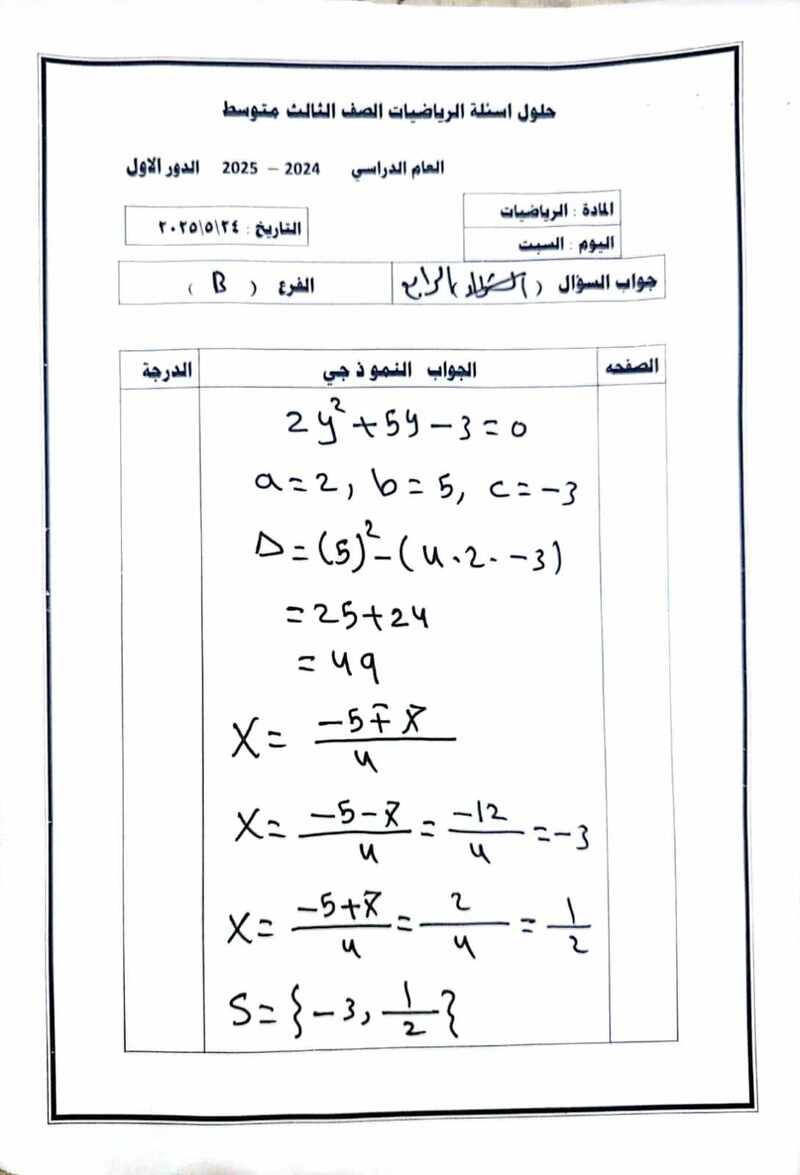 حلول اسئلة الرياضيات الصف الثالث متوسط
العام الدراسي 2024 – 2025 الدور الاول
المادة : الرياضيات
التاريخ : ٢٠٢٥\٥\٢٤
اليوم : السبت
جواب السؤال ( الرابع ) الفرع ( B )
الصفحه الجواب النموذجي الدرجة
2y² + 5y − 3 = 0
a = 2, b = 5, c = −3
Δ = (5)² − (4 · 2 · −3)
= 25 + 24
= 49
X = (−5 ∓ 7)/4
X = (−5 − 7)/4 = −12/4 = −3
X = (−5 + 7)/4 = 2/4 = 1/2
S = {−3, 1/2}